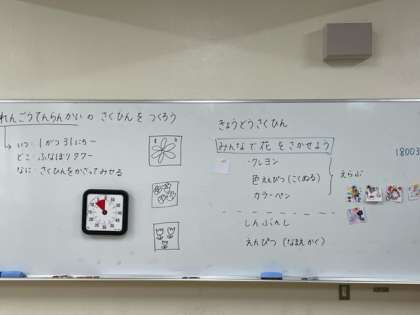 れんごうてんらんかいの さくひんを つくろう
いつ：1がつ31にち〜
どこ：ふなぼりタワー
なに：さくひんをかざってみせる
きょうどうさくひん
みんなで花をさかせよう
・クレヨン
色えんぴつ(こくぬる)
カラーペン
えらぶ
しんぶんし
えんぴつ(なまえかく)
18003